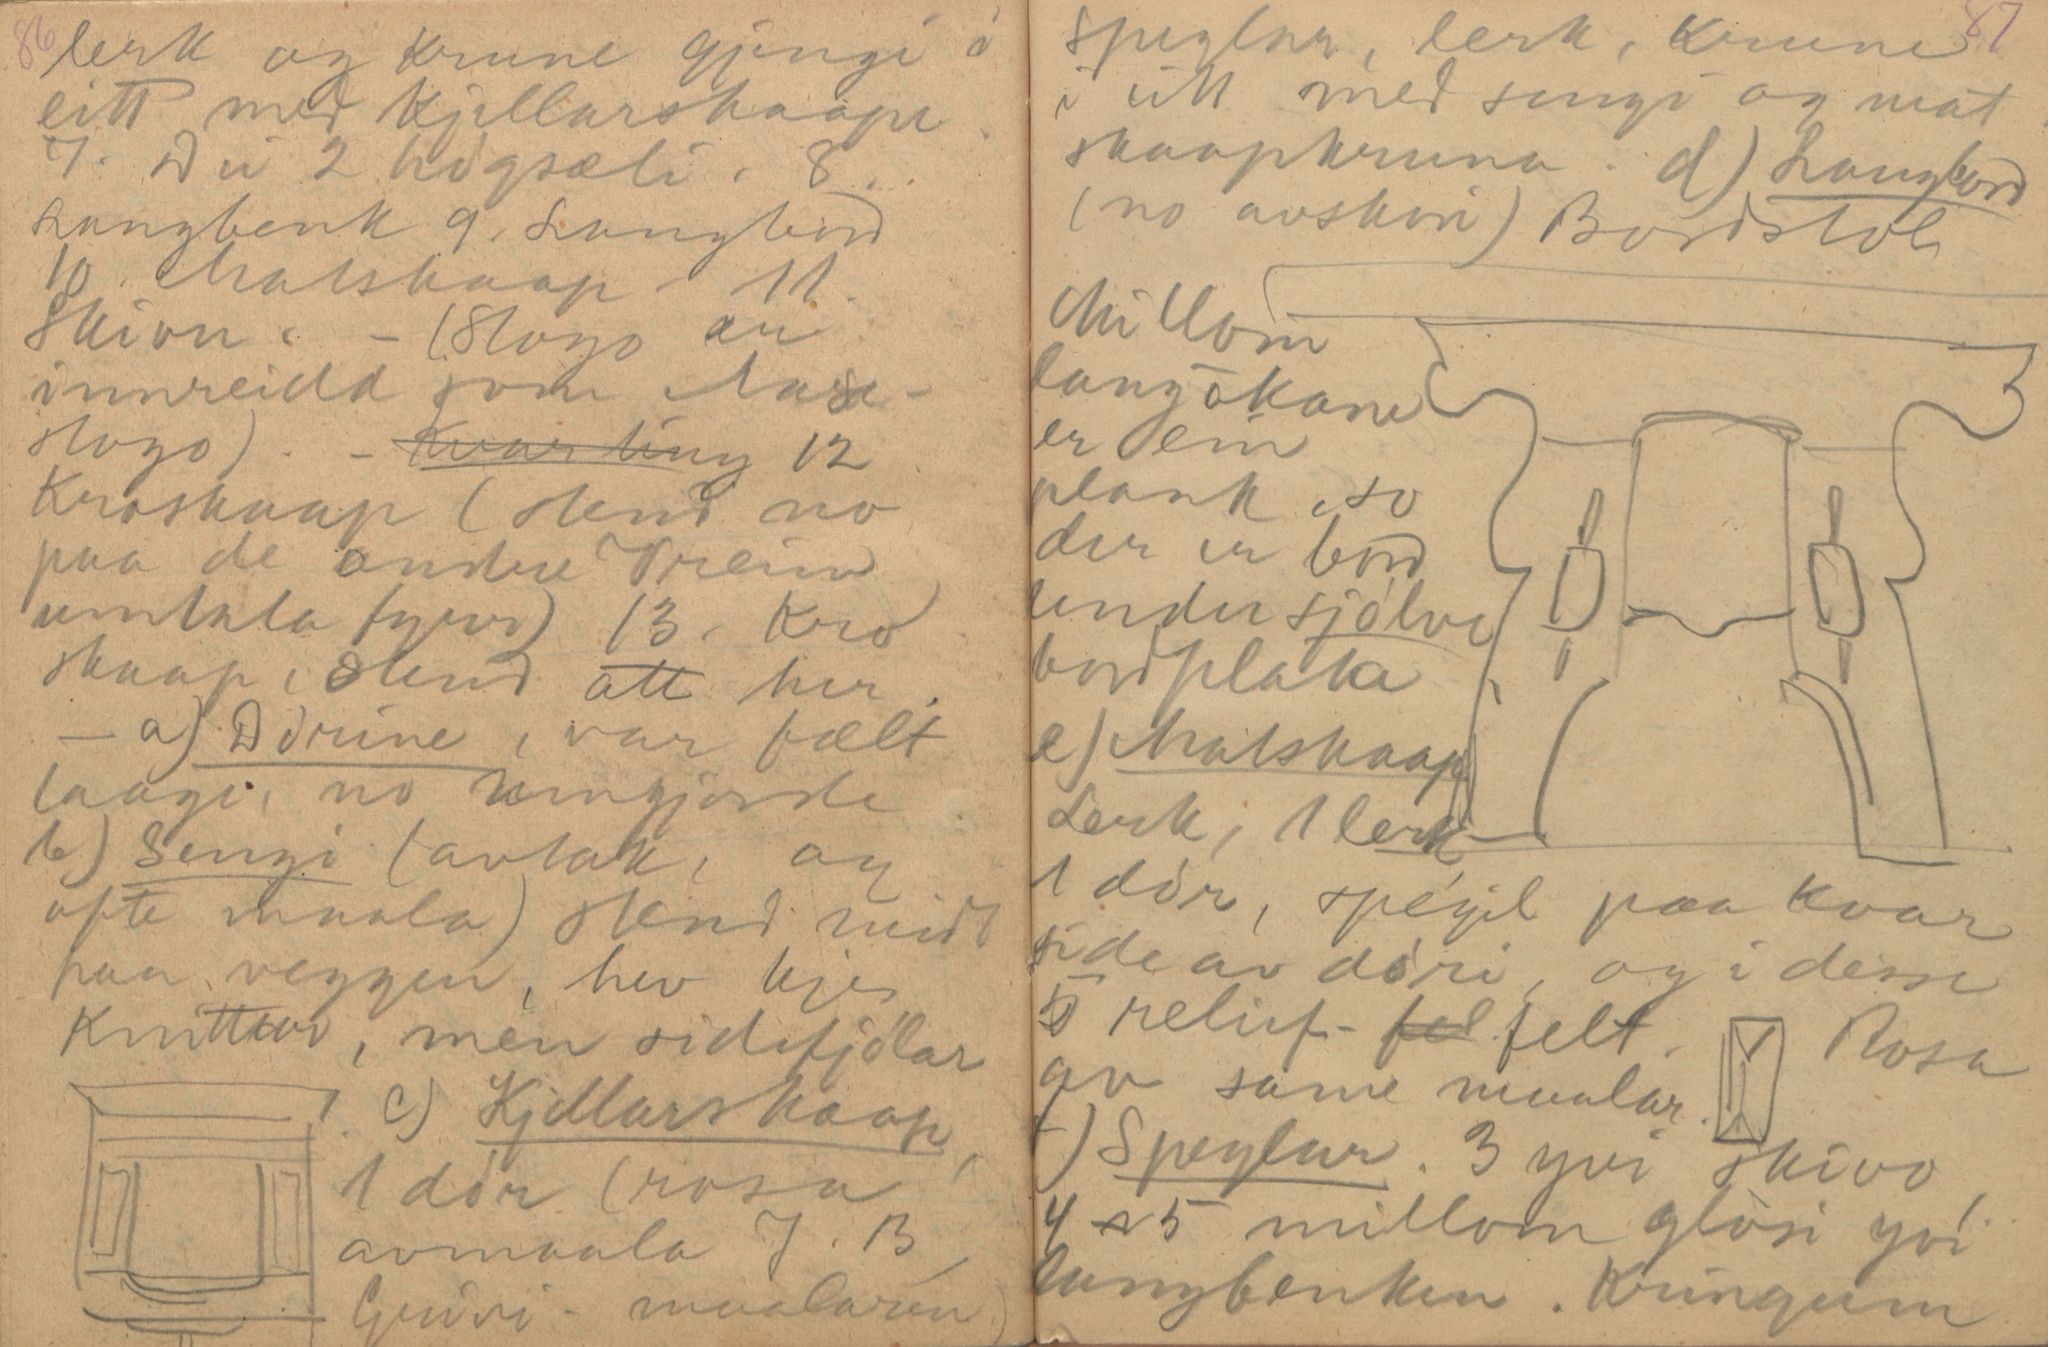 86
lerk og krune gjengi i
eitt med kjellarskaape.
7. Dei 2 högsæli. 8.
Langbenk 9. Langbord
10. Matskaap 11.
Skivn. - (Stogo er
innreidd som Aase-
stogo). - Kvar ting 12
Kroskaap (stend no
paa de andre Treim
umtala fyrr) 13. Kro
skaap, stend att her.
- a) Dörine, var fælt
laage, no umgjorde
b) Sengi (avlak, og
ofte maala) stend midt
paa veggen, hev kje
knittar, men sidefjölar
c) Kjellarskaap,
1 dör (rosa
avmaala 7. B
Gruvi-maalaren)
87
Speglar, lerk, krune
i eitt med sengi og mat
skaapkruna. d) Langbord
(no avskori) Bordstol
Millom
langökane
er ein
plank so
der er bord
under sjölve
bordplata
e) Matskaap
Lerk, 1 lerk-
1 dör, spegil paa kvar
side av döri, og i desse
5 relief- fel felt. Rosa
av same maalar.
f) Speglar. 3 yvi skivo
4 a 5 millom glösi yvi
langbenken. Kringum